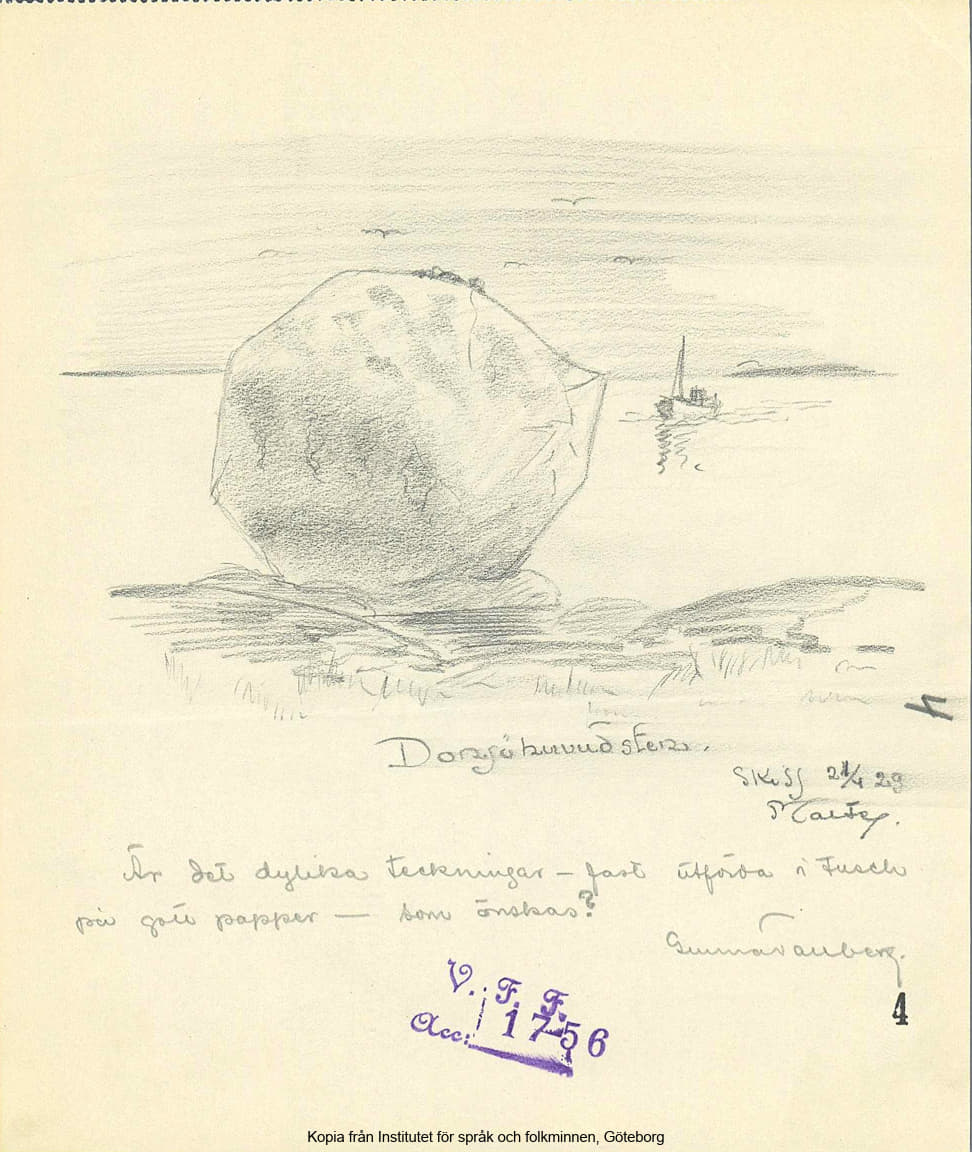 Donsöhuvudsten.
Skiss 21/4 29
4
Är det dylika teckningar – fast utförda i tusch
på gott papper — som önskas?
V. F. F.
Acc: 1756
4
Kopia från Institutet för språk och folkminnen, Göteborg